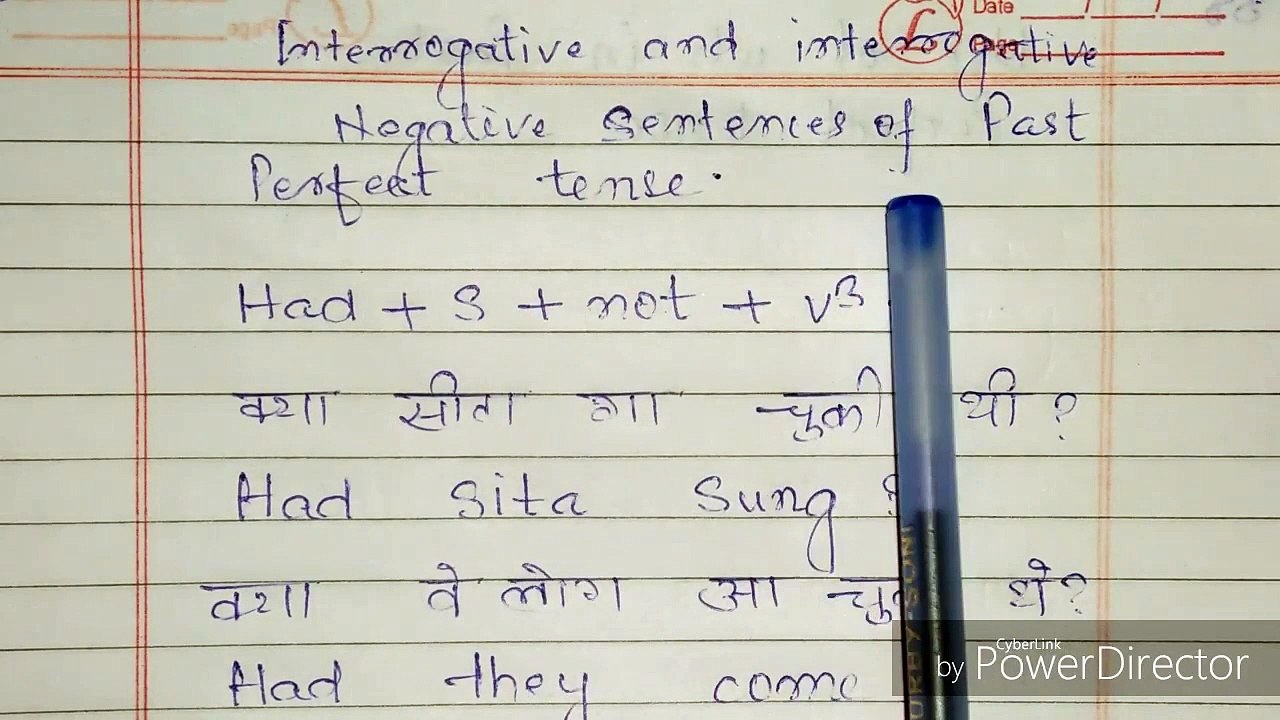 Date
Interrogative and interrogative
Negative Sentences of Past
Perfect tense.
Had + S + not + V3
क्या सीता गा चुकी थी ?
Had Sita Sung ?
क्या वे लोग आ थे?
Had they come
CyberLink
by PowerDirector